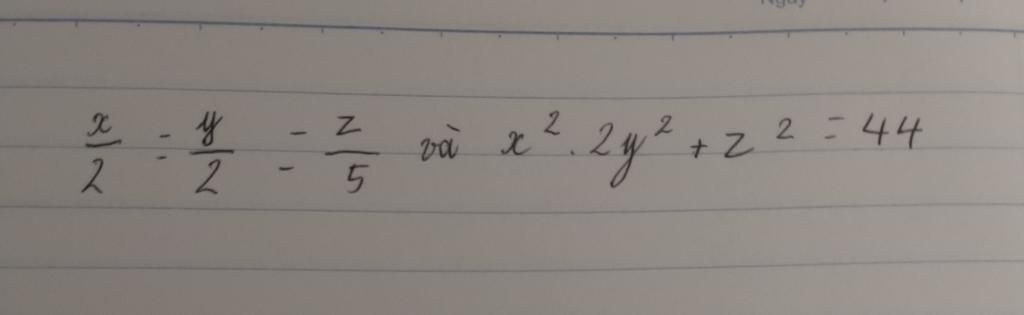 Ngày
x/2 = y/2 = z/5 và x². 2y² + z² = 44